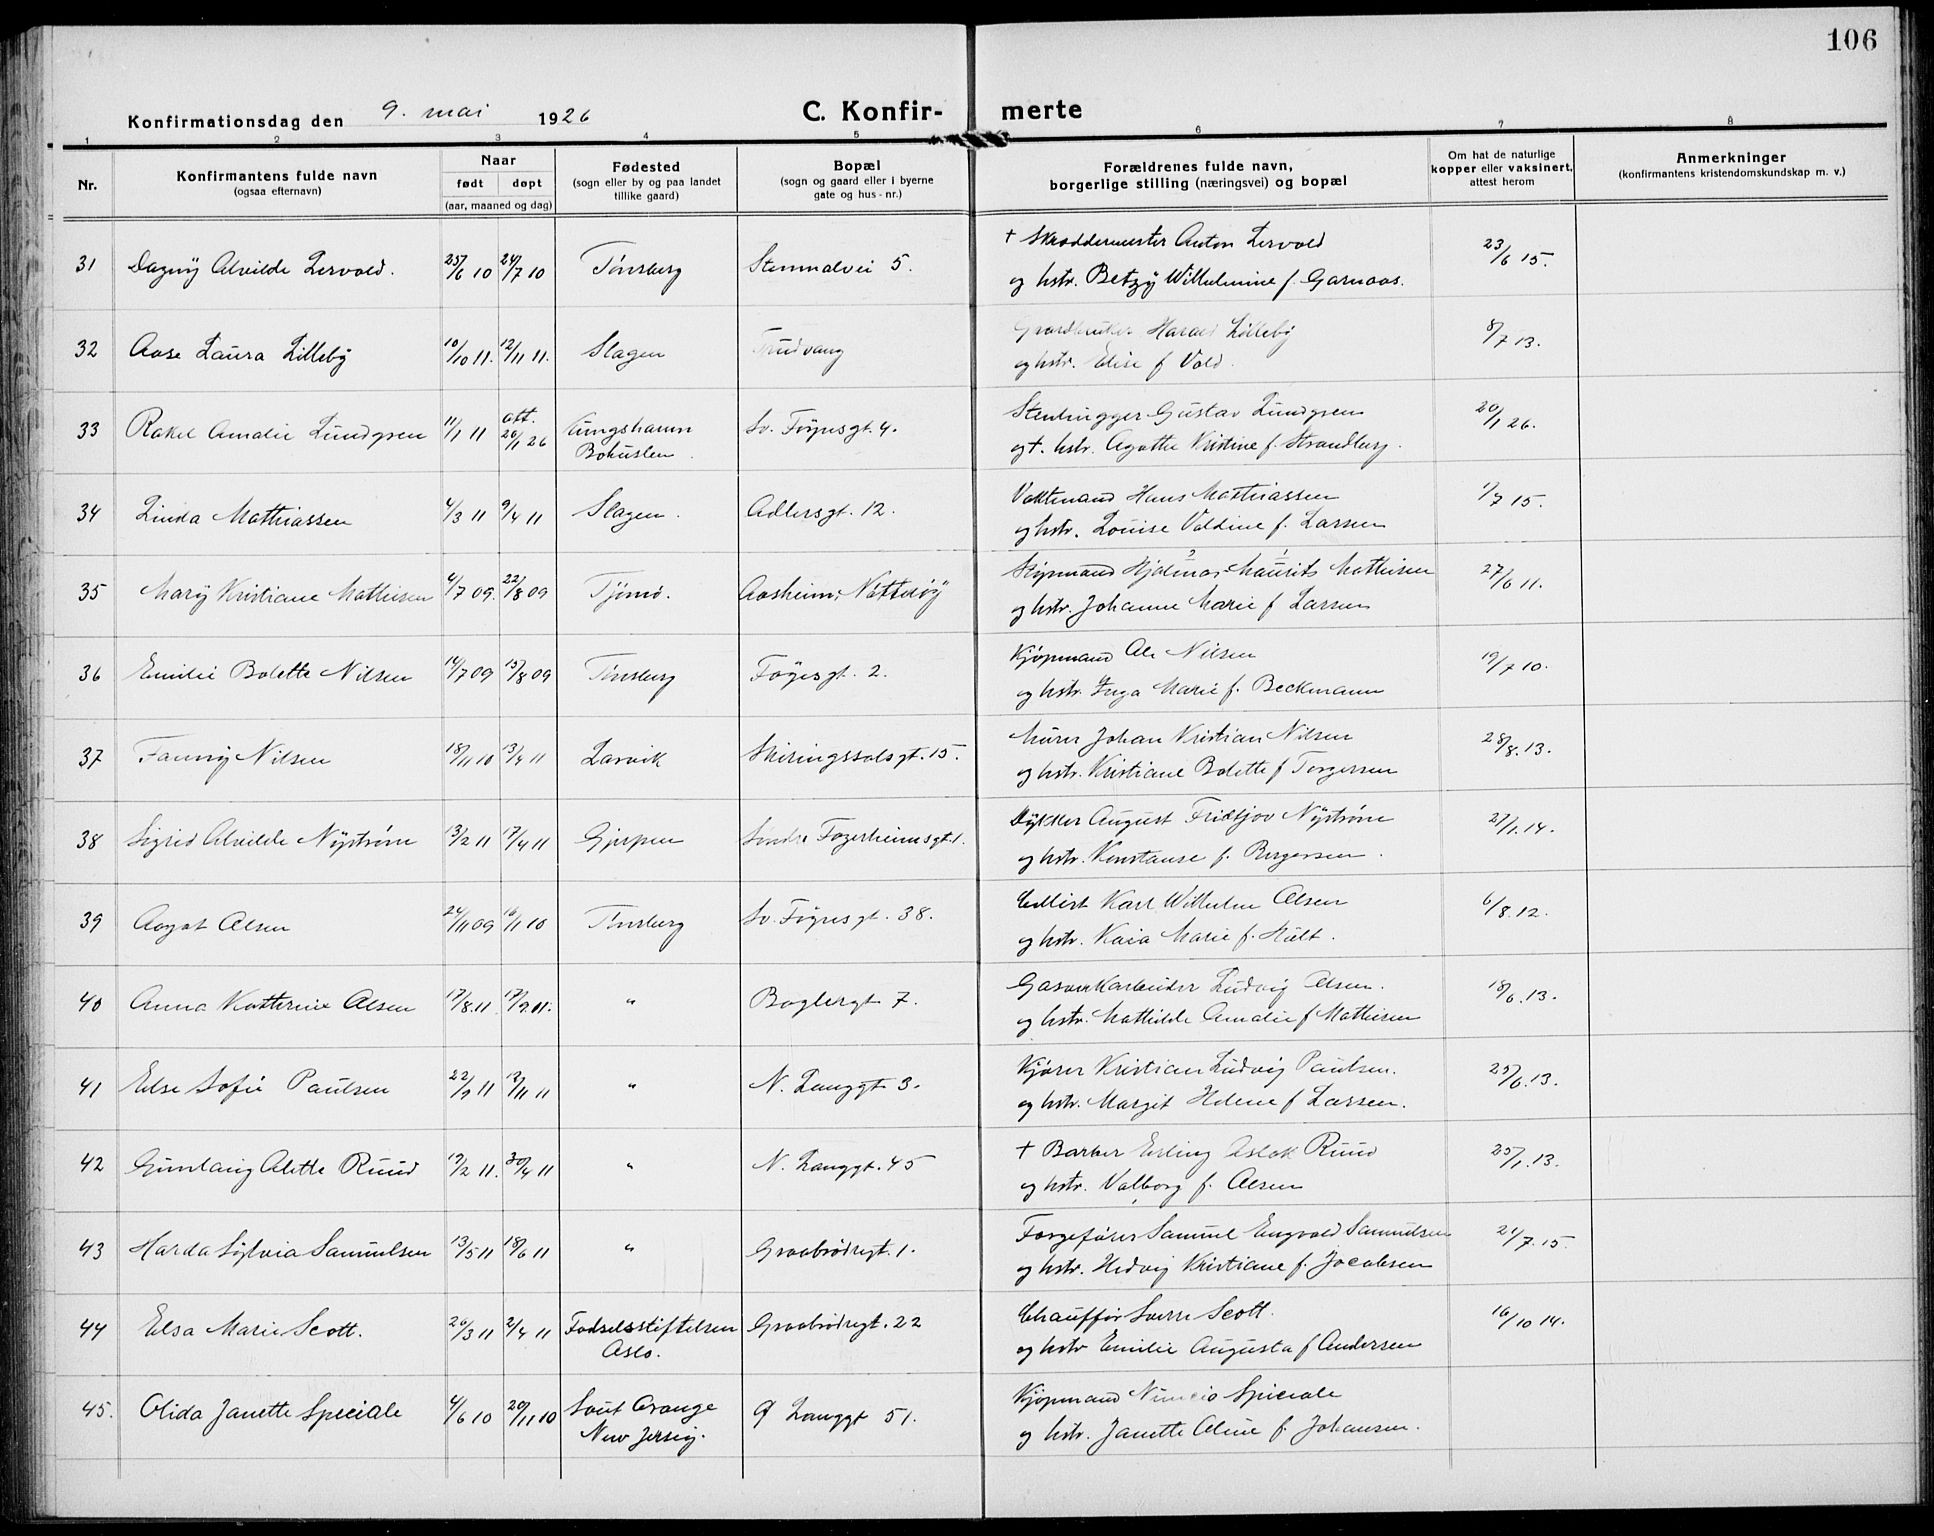 106
Konfirmationsdag den 9. mai 1926 C. Konfir- merte
1 2 3 4 5 6 7 8
Nr.
Konfirmantens fulde navn
(ogsaa efternavn)
Naar
født døpt
(aar, maaned og dag)
Fødested
(sogn eller by og paa landet
tillike gaard)
Bopæl
(sogn og gaard eller i byerne
gate og hus-nr.)
Forældrenes fulde navn,
borgerlige stilling (næringsvei) og bopæl
Om hat de naturlige
kopper eller vaksinert,
attest herom
Anmerkninger
(konfirmantens kristendomskundskap m. v.)
31 Dagny Alvilde Lervold. 25/6 10 24/7 10 Tønsberg Stenmalvei 5. + Skreddermester Anton Lervold 23/6 15.
og hstr. Betzy Wilhelmine f. Garnaas.
32 Aase Laura Lilleby 10/10 11. 12/11 11. Slagen Trudvang Gaardbruker Harald Lilleby 8/7 13.
og hstr. Elise f Vold.
33 Rakel Amalie Lundgren 11/1 11 att. 20/1 26 Kungshamn Sv. Føynsgt. 4. Stenhugger Gustav Lundgren 20/1 26.
Bohuslen. og +. hstr. Agathe Kristine f. Strandberg.
34 Linda Mathiassen 4/3 11 9/4 11 Slagen. Adlersgt. 12. Vaktmand Hans Mathiassen 1/7 15.
og hstr. Louise Valdine f. Larsen
35 Mary Kristiane Mathisen 4/7 09. 22/8 09 Tjømø. Aasheim, Nøtterøy Skipmand Hjalmar Maurits Mathisen 27/6 11.
og hstr. Johanne Marie f Larsen
36 Emilie Bolette Nilsen 14/7 09 15/8 09 Tønsberg Føynsgt. 2. Kjøpmand Ole Nilsen 19/7 10.
og hstr. Inga Marie f. Beckmann
37 Fanny Nilsen 18/11 10 13/4 11 Larvik Skiringssalsgt. 15. Murer Johan Kristian Nilsen 28/8. 13.
og hstr. Kristiane Bolette f Torgersen
38 Sigrid Alvilde Nystrøm 13/2 11 17/4 11 Gjerpen Søndre Fagerheimsgt. 1. Dykker August Fridtjov Nystrøm 27/1. 14.
og hstr. Konstanse f. Børgersen.
39 Aagot Olsen 24/11 09 16/1 10 Tønsberg Sv. Føynsgt. 38. Cellist Karl Wilhelm Olsen 6/8. 12.
og hstr. Kaia Marie f. Hult.
40 Anna Katherine Olsen 17/8. 11 17/9. 11. " Baglergt 7. Gasverkarbeider Ludvig Olsen. 18/6. 13.
og hstr. Mathilde Amalie f Mathisen
41 Else Sofie Paulsen 22/9 11 12/11 11 " N. Langgt 3. Kjører Kristian Ludvig Paulsen. 25/6. 13.
og hstr. Margit Helene f Larsen.
42 Gunlaug Alette Ruud 19/2 11. 30/4 11 " N. Langgt. 45 + Barber Erling Aslak Ruud 25/1. 13.
og hstr. Valborg f. Olsen
43 Harda Sylvia Samuelsen 13/5 11 18/6 11 " Graabrødregt. 1. Forgefører Samuel Engvald Samuelsen 21/7. 15.
og hstr. Hedvig Kristiane f. Jacobsen
44 Elsa Marie Scott. 26/3 11 2/4 11 Fødselsstiftelsen Graabrødregt. 22 Chauffør Sverre Scott. 16/10 14.
Oslo. og hstr Emilie Augusta f Andersen
45. Olida Janette Speciale 4/6 10 20/11 10 Sout Orange Ø Langgt 51. Kjøpmand Nuncio Speciale
New Jersey. og hstr. Janette Oline f. Johansen.